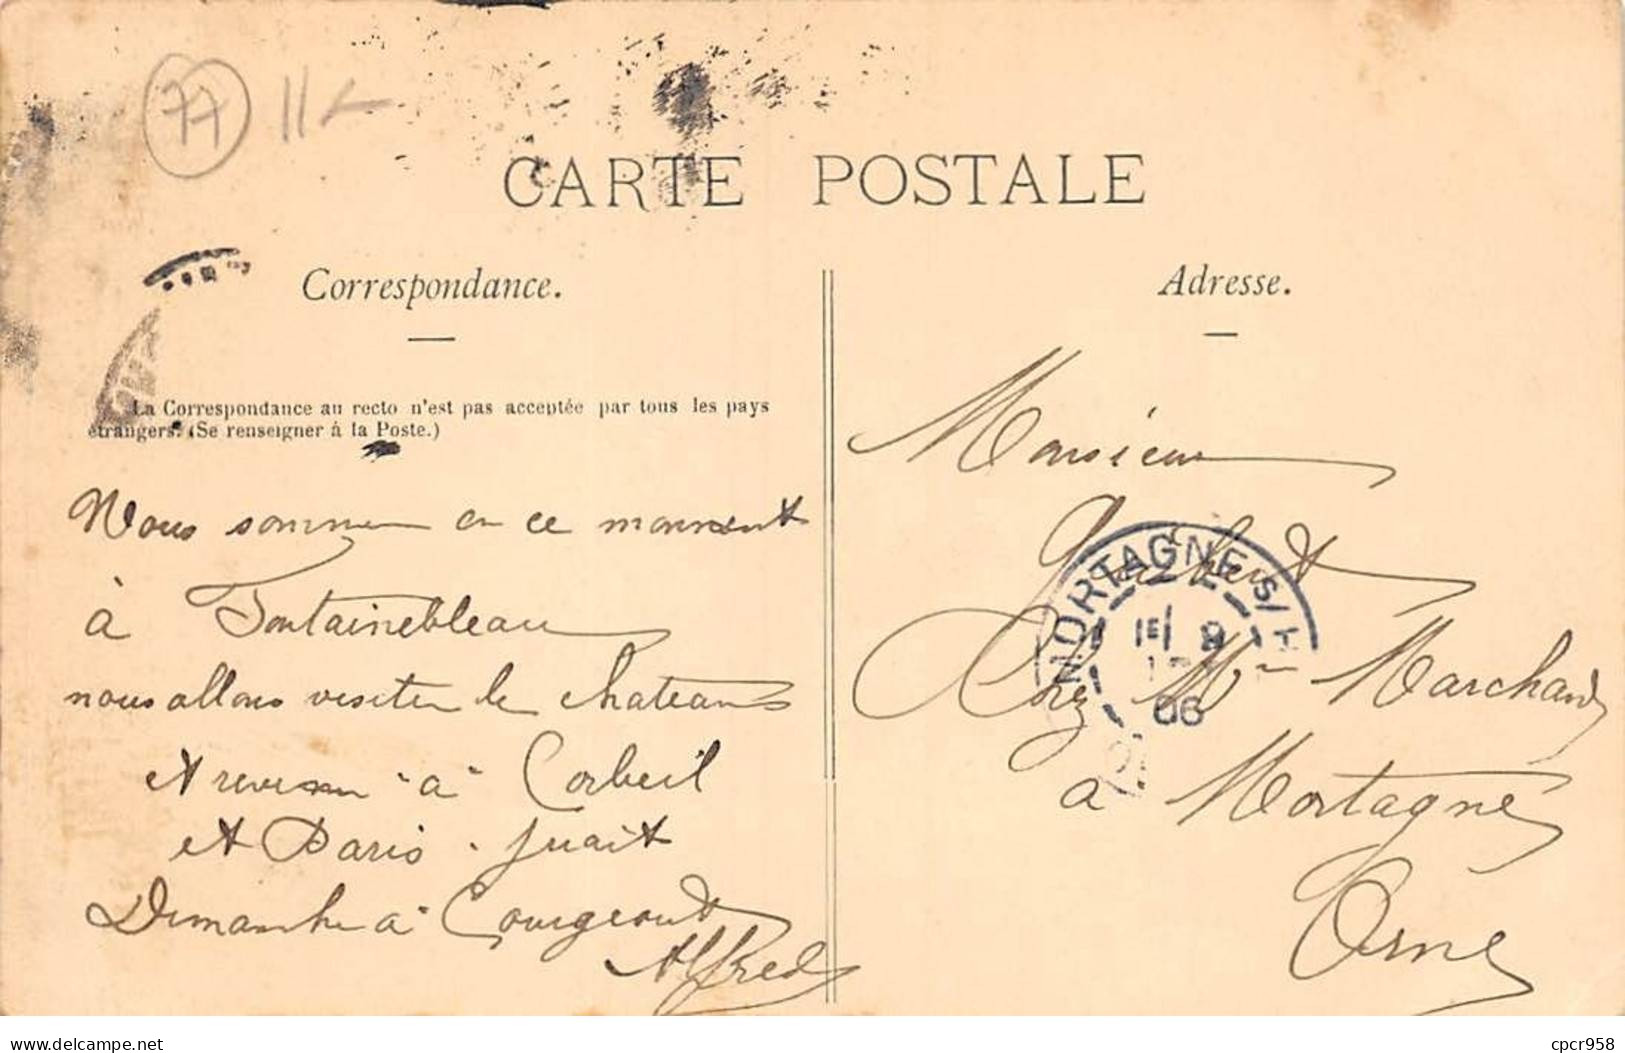 77
CARTE POSTALE
Correspondance.
La Correspondance au recto n'est pas acceptée par tous les pays
étrangers. (Se renseigner à la Poste.)
Nous sommes en ce moment
à Fontainebleau
nous allons visiter le chateau
et à Corbeil
et Paris
Dimanche à Courgeout
Alfred
Adresse.
Monsieur
Chez Mr Marchand
a Mortagne
Orne
MORTAGNE S/H
06
delcampe.net
cpcr958